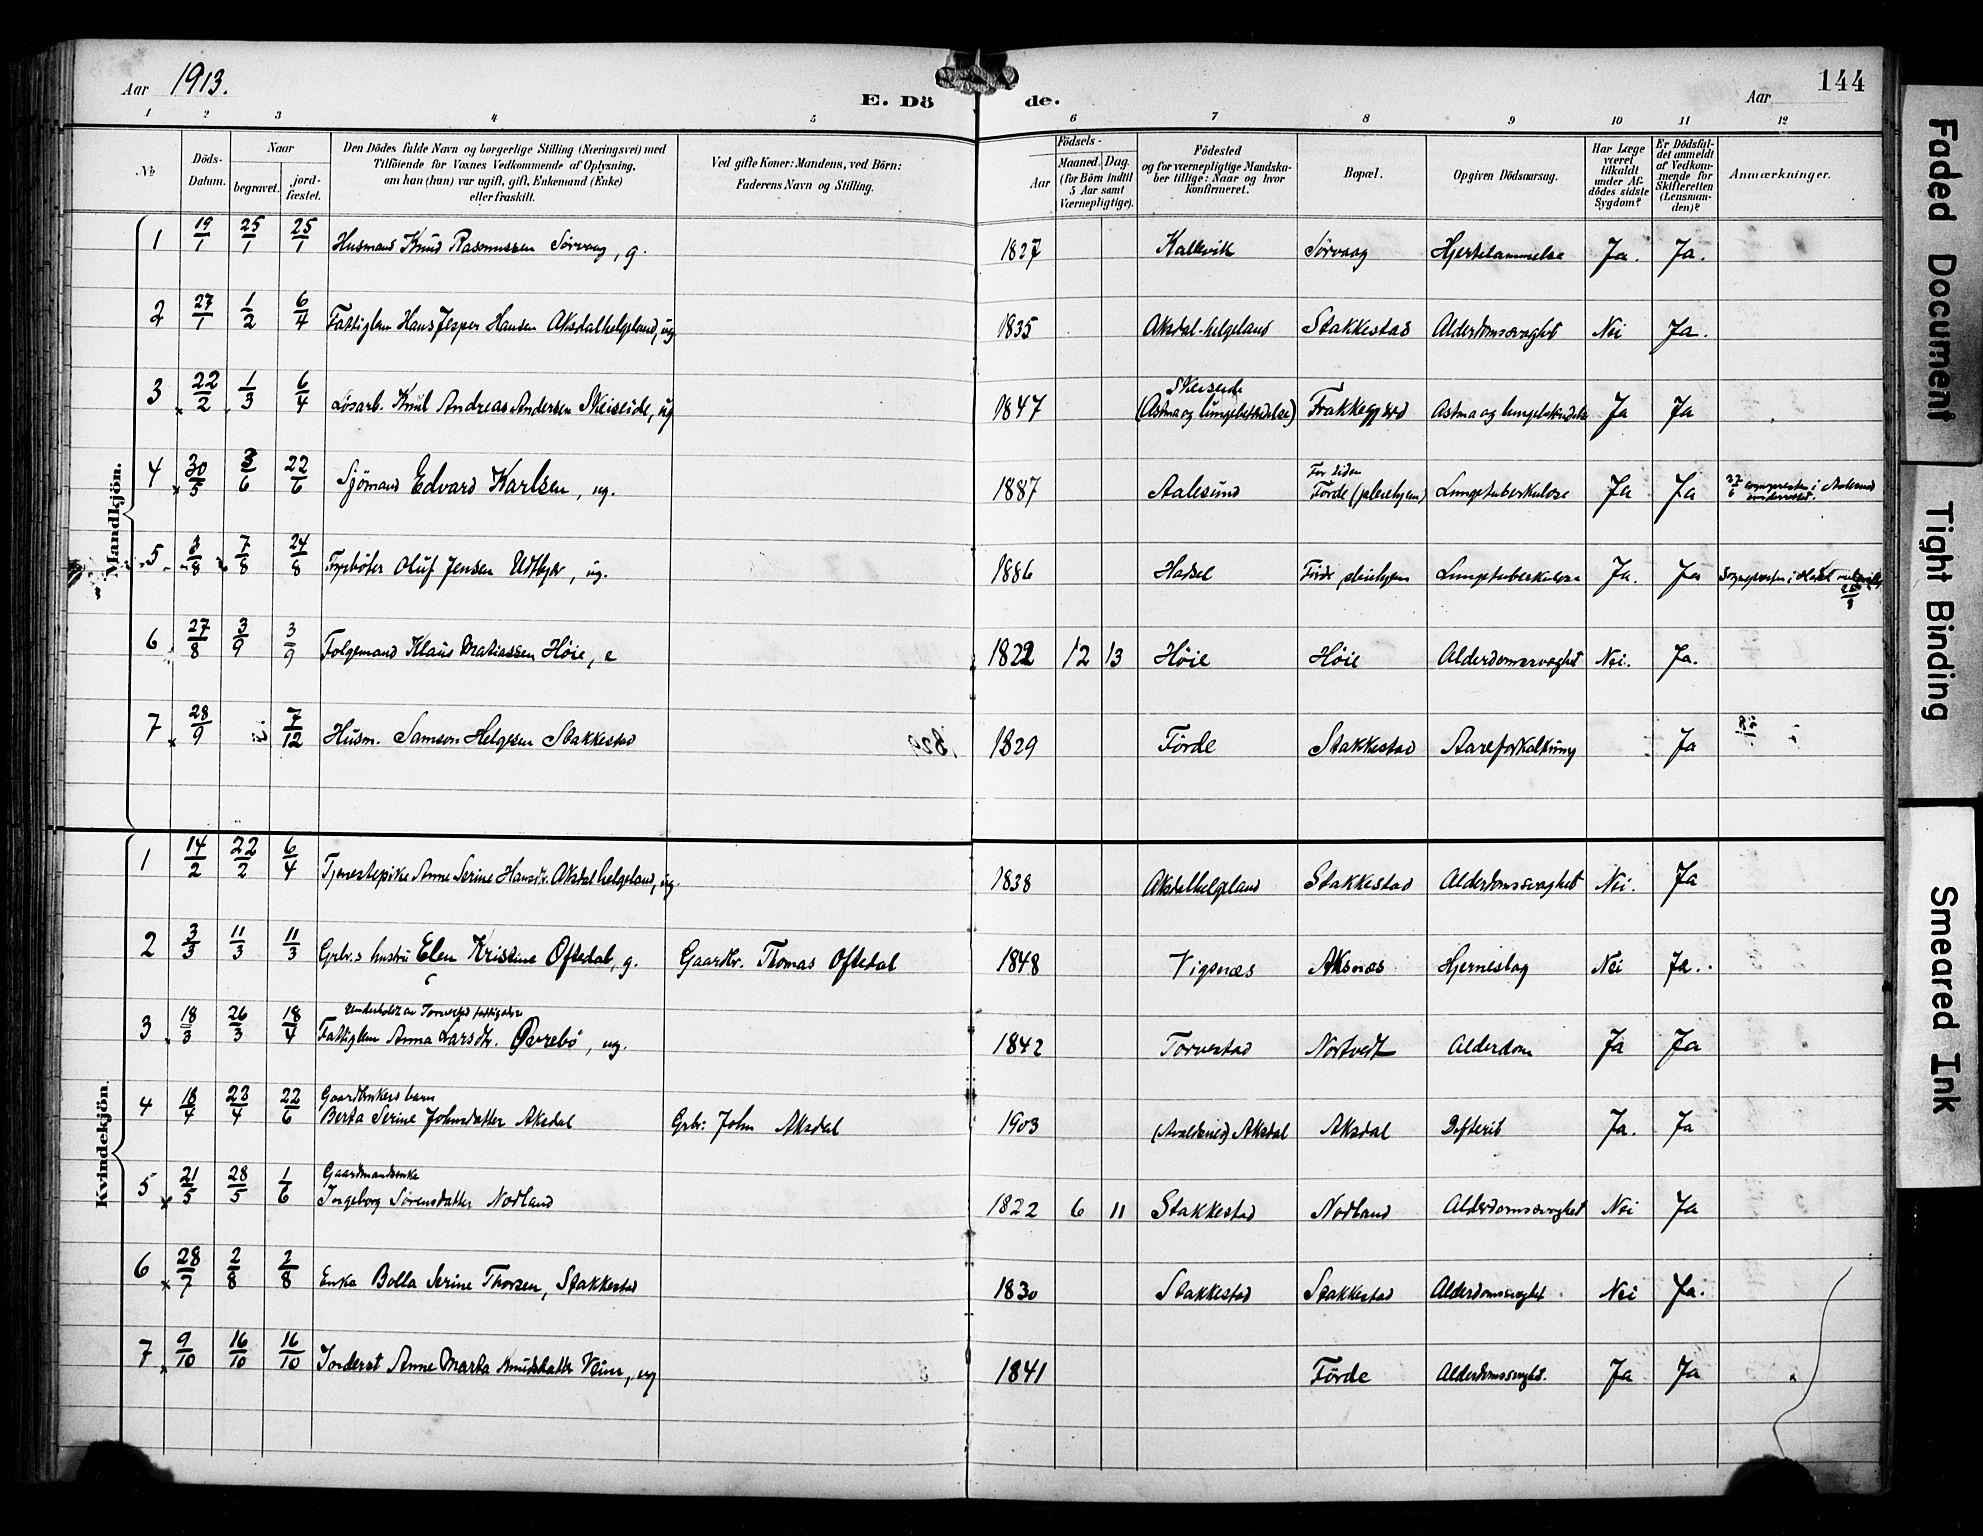 Aar 1913.
E. Döde.
Aar
144
1 2 3 4 5 6 7 8 9 10 11 12
№
Döds-Datum.
Naar
begravet.
jord-fæstet.
Den Dödes fulde Navn og borgerlige Stilling (Næringsvei) med
Tilföiende for Voxnes Vedkommende af Oplysning,
om han (hun) var ugift, gift, Enkemand (Enke)
eller fraskilt.
Ved gifte Koner: Mandens, ved Börn:
Faderens Navn og Stilling.
Födsels-
Aar
Maaned. Dag.
(for Börn indtil
5 Aar samt
Værnepligtige).
Födested
og for værnepligtige Mandska-
ber tillige: Naar og hvor
konfirmeret.
Bopæl.
Opgiven Dödsaarsag.
Har Læge
været
tilkaldt
under Af-
dödes sidste
Sygdom?
Er Dödsfal-
det anmeldt
af Vedkom-
mende for
Skifteretten
(Lensman-
den)?
Anmærkninger.
Mandkjön.
1 19/1 25/1 25/1 Husmand Knud Rasmussen Sørvaag, g. 1827 Kallevik Sørvaag Hjertelammelse Ja. Ja.
2 27/1 1/2 6/4 Fattiglem Hans Jesper Hansen Aksdalhelgeland, ug 1835 Aksdal-helgeland Stakkestad Alderdomssvaghet Nei Ja.
3 22/2 1/3 6/4 Løsarb. Knut Andreas Andersen Skeiseide, ug 1847 Skeiseide (Astma og lungebetændelse) Frakkegjerd Astma og lungebetændelse Ja Ja
4 30/5 3/6 22/6 Sjømand Edvard Karlsen, ug. 1887 Aalesund For tiden Førde (pleiehjem) Lungetuberkulose Ja Ja 27/6 sogneprest i Aalesund underrettet.
5 3/8 7/8 24/8 Fyrbøter Oluf Jensen, ug. 1886 Hadsel Førde pleiehjem Lungetuberkulose Ja. Ja Sognepresten i Hadsel
6 27/8 3/9 3/9 Folgemand Klaus Matiassen Høie, e 1822 12 13 Høie Høie Alderdomssvaghet Nei. Ja.
7 28/9 7/12 Husm. Samson Helgesen Stakkestad 1829 Førde Stakkestad Aareforkalkning Ja
Kvindekjön.
1 14/2 22/2 6/4 Tjenestepike Anne Serine Hansdtr. Aksdalhelgeland, ug. 1838 Aksdalhelgeland Stakkestad Alderdomssvaghet Nei. Ja
2 3/3 11/3 11/3 Grbr.s hustru Elen Kristine Oftedal, g. Gaardbr. Thomas Oftedal 1848 Vigsnæs Aksnæs Hjerneslag Nei Ja..
3 18/3 26/3 18/4 Underholdt av Torvestad fattigvæsen
Fattiglem Anna Larsdtr. Øvrebø, ug. 1842 Torvestad Nortvedt Alderdom Ja Ja
4 18/4 23/4 22/6 Gaardbrukers barn
Berta Serine Johnsdatter Aksdal Grbr: John Aksdal 1903 (Avaldsnes) Aksdal Aksdal Difterit Ja. Ja
5 21/5 28/5 1/6 Gaardmandsenke
Ingeborg Sørensdatter Nodland 1822 6 11 Stakkestad Nodland Alderdomssvaghet Nei Ja
6 28/7 2/8 2/8 Enke Bolla Serine Thorsen, Stakkestad 1830 Stakkestad Stakkestad Alderdomssvaghet Nei Ja.
7 9/10 16/10 16/10 Inderst Anne Marta Knudsdatter, ug 1841 Førde Alderdomssvaghet. Ja Ja
Faded Document
Tight Binding
Smeared Ink